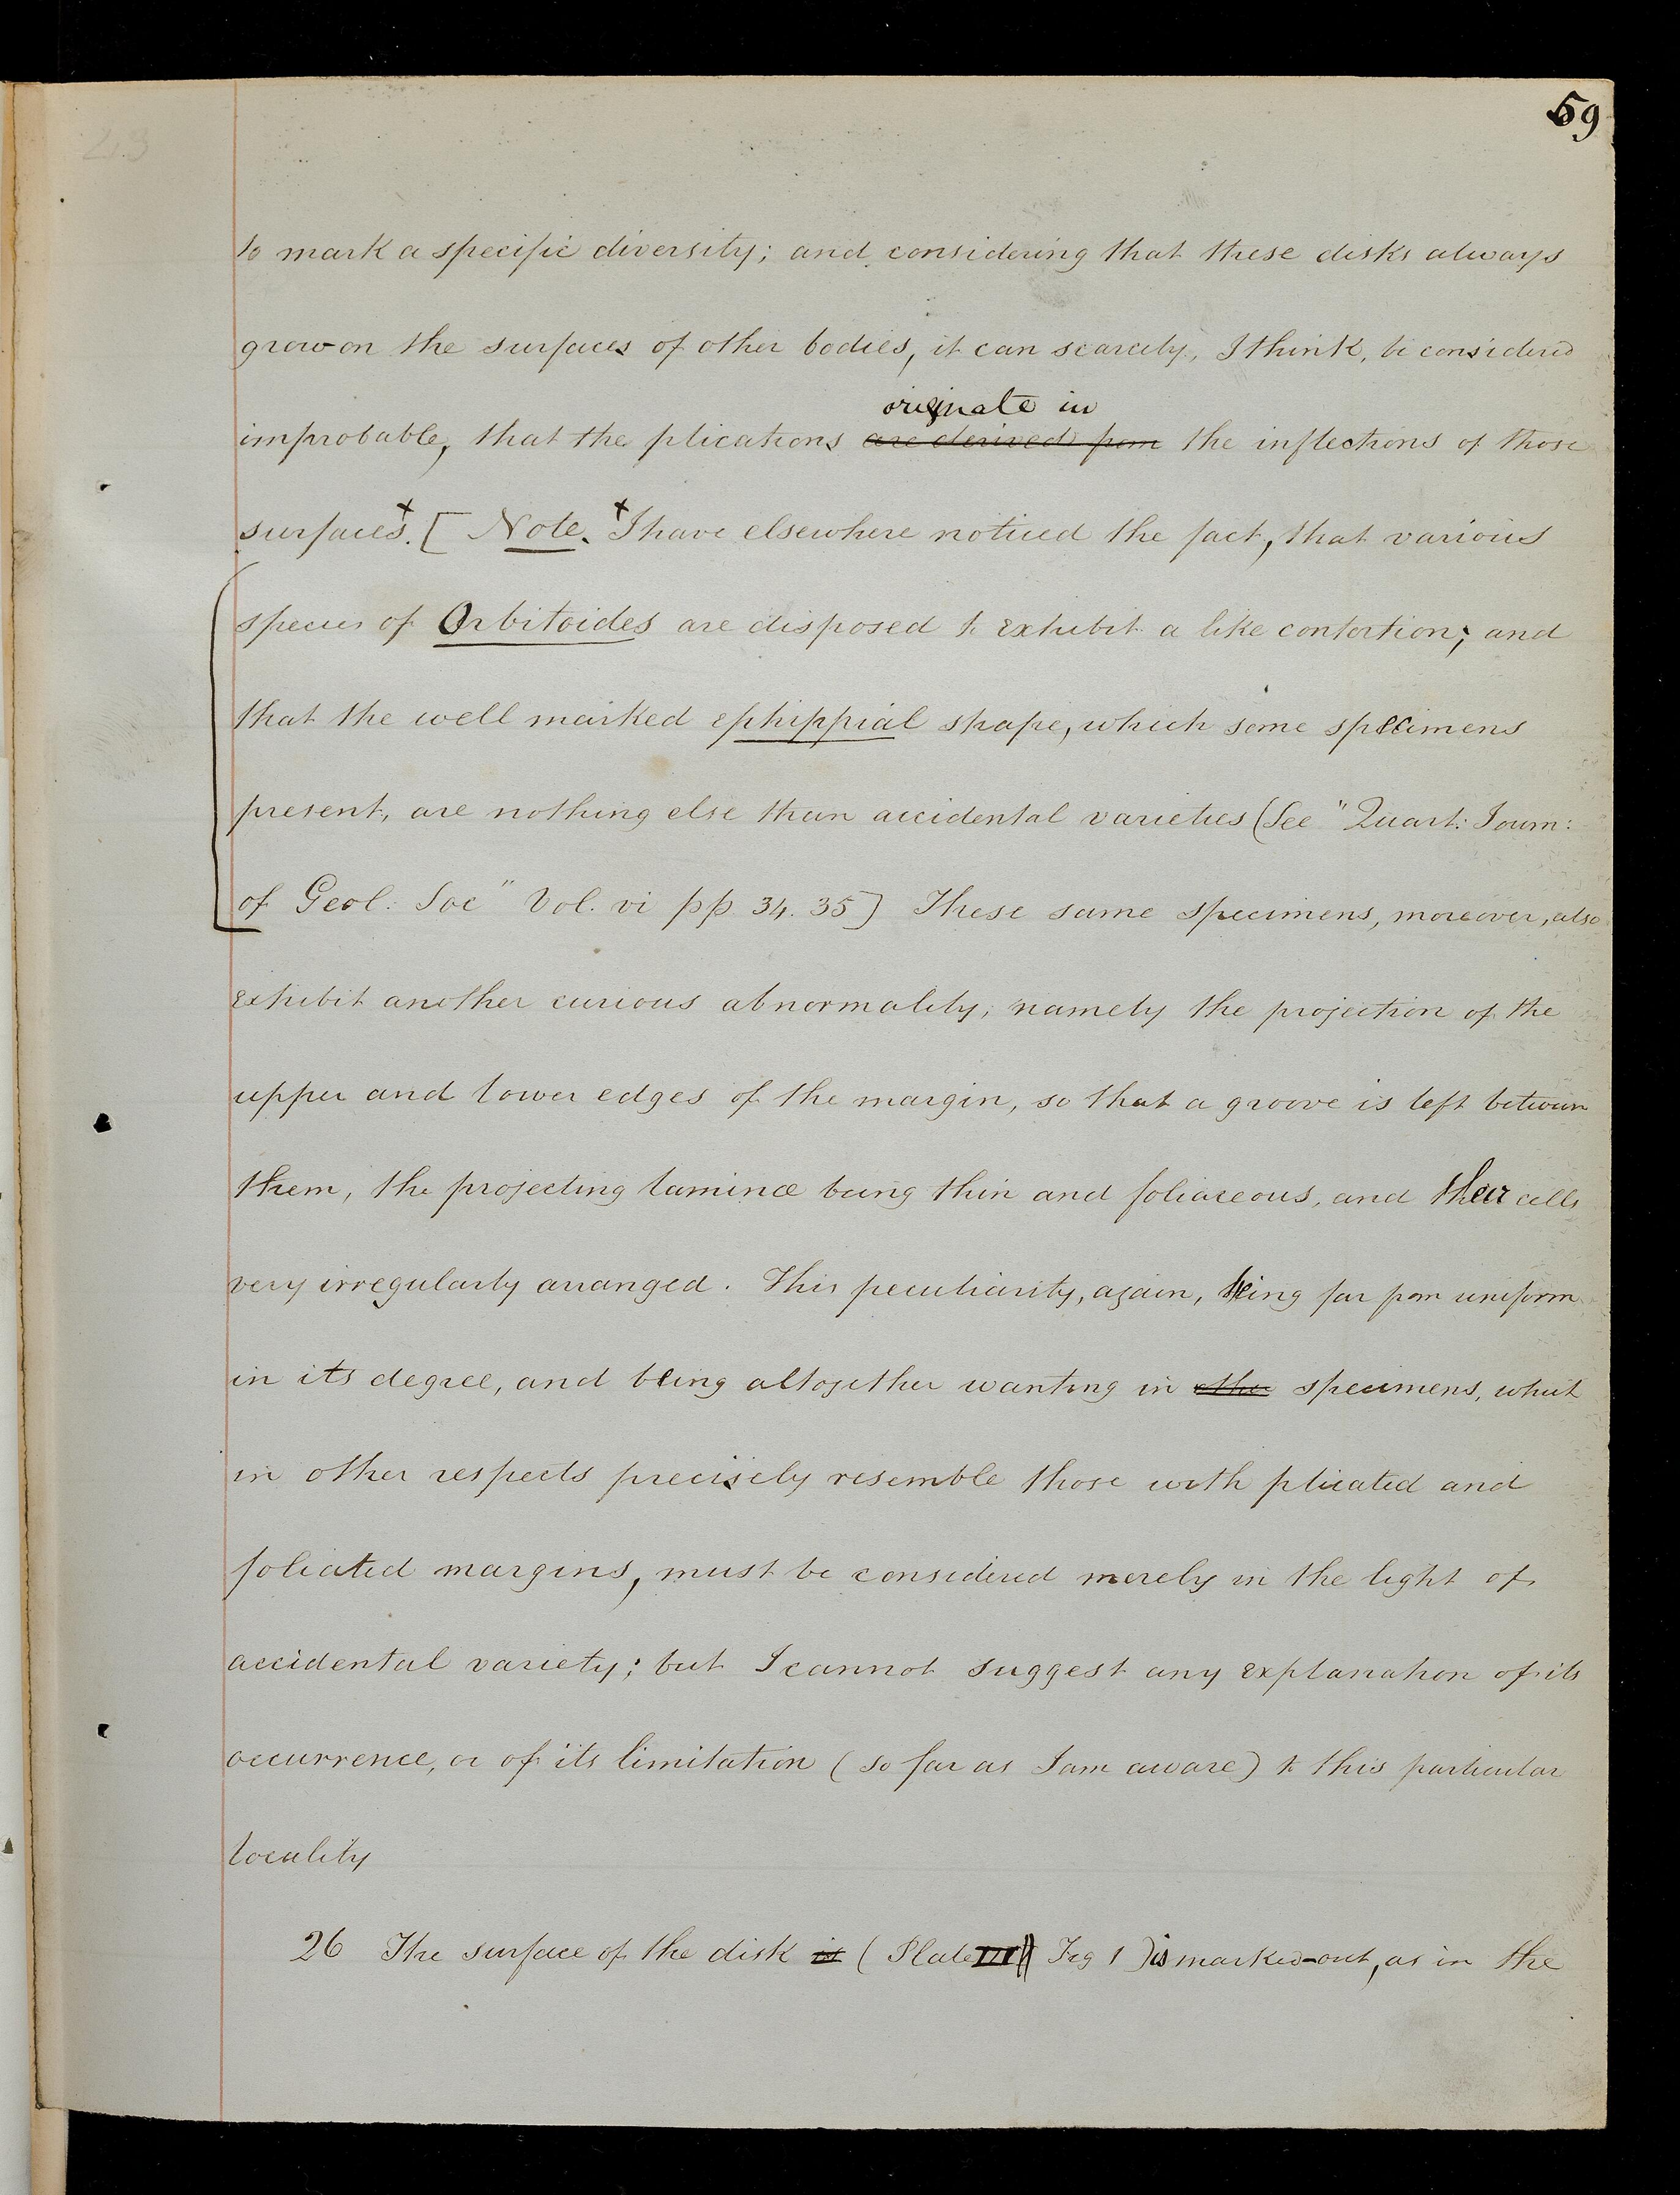 59
to mark a specific diversity; and considering that these disks always
grow on the surfaces of other bodies, it can scarcely, I think, be considered
originate in
improbable, that the plications are derived from the inflections of those
surfaces.+ [Note. + I have elsewhere noticed the fact, that various
species of Orbitoides are disposed to exhibit a like contortion; and
that the well marked ephippial shape, which some specimens
present, are nothing else than accidental varieties (See "Quart: Journ:
of Geol: Soc" Vol. vi pp. 34. 35] These same specimens, moreover, also
exhibit another curious abnormality, namely the projection of the
upper and lower edges of the margin, so that a groove is left between
them, the projecting laminæ being thin and foliaceous, and their cells
very irregularly arranged. This peculiarity, again, being far from uniform
in its degree, and being altogether wanting in other specimens, which
in other respects precisely resemble those with plicated and
foliated margins, must be considered merely in the light of
accidental variety; but I cannot suggest any explanation of its
occurrence, or of its limitation (so far as I am aware) to this particular
locality
26 The surface of the disk is (Plate Fig 1) is marked-out, as in the